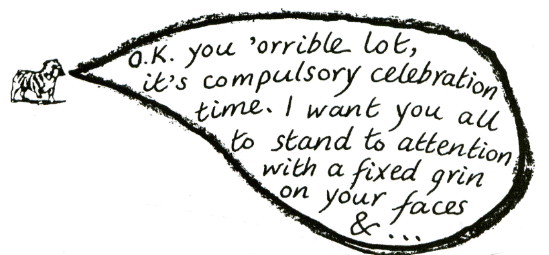 O.K. you 'orrible lot,
it's compulsory celebration
time. I want you all
to stand to attention
with a fixed grin
on your faces
& ...